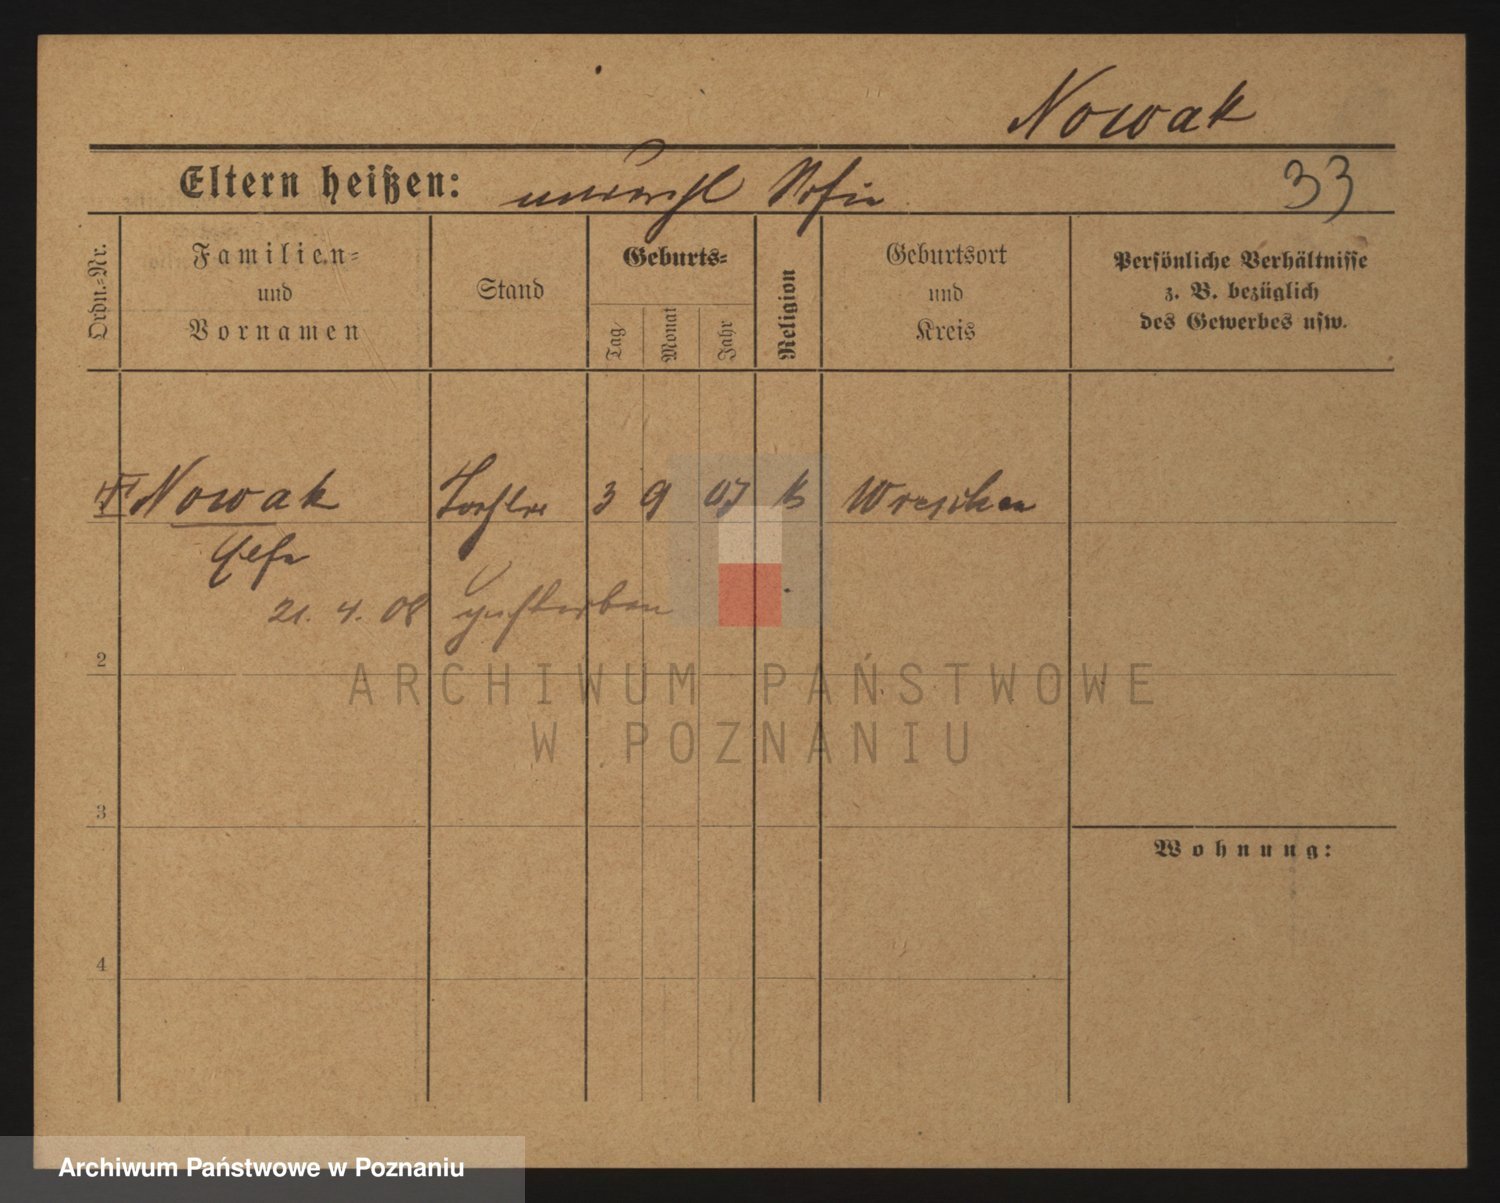 Nowak
Eltern heißen: unverehl Sofie
33
Ordn.-Nr.
Familien-
und
Vornamen
Stand
Geburts-
Tag
Monat
Jahr
Religion
Geburtsort
und
Kreis
Persönliche Verhältnisse
z. B. bezüglich
des Gewerbes usw.
Nowak Tochter 3 9 07 k Wreschen
21. 4. 08 gestorben
2
3
4
Wohnung:
ARCHIWUM PAŃSTWOWE
W POZNANIU
Archiwum Państwowe w Poznaniu